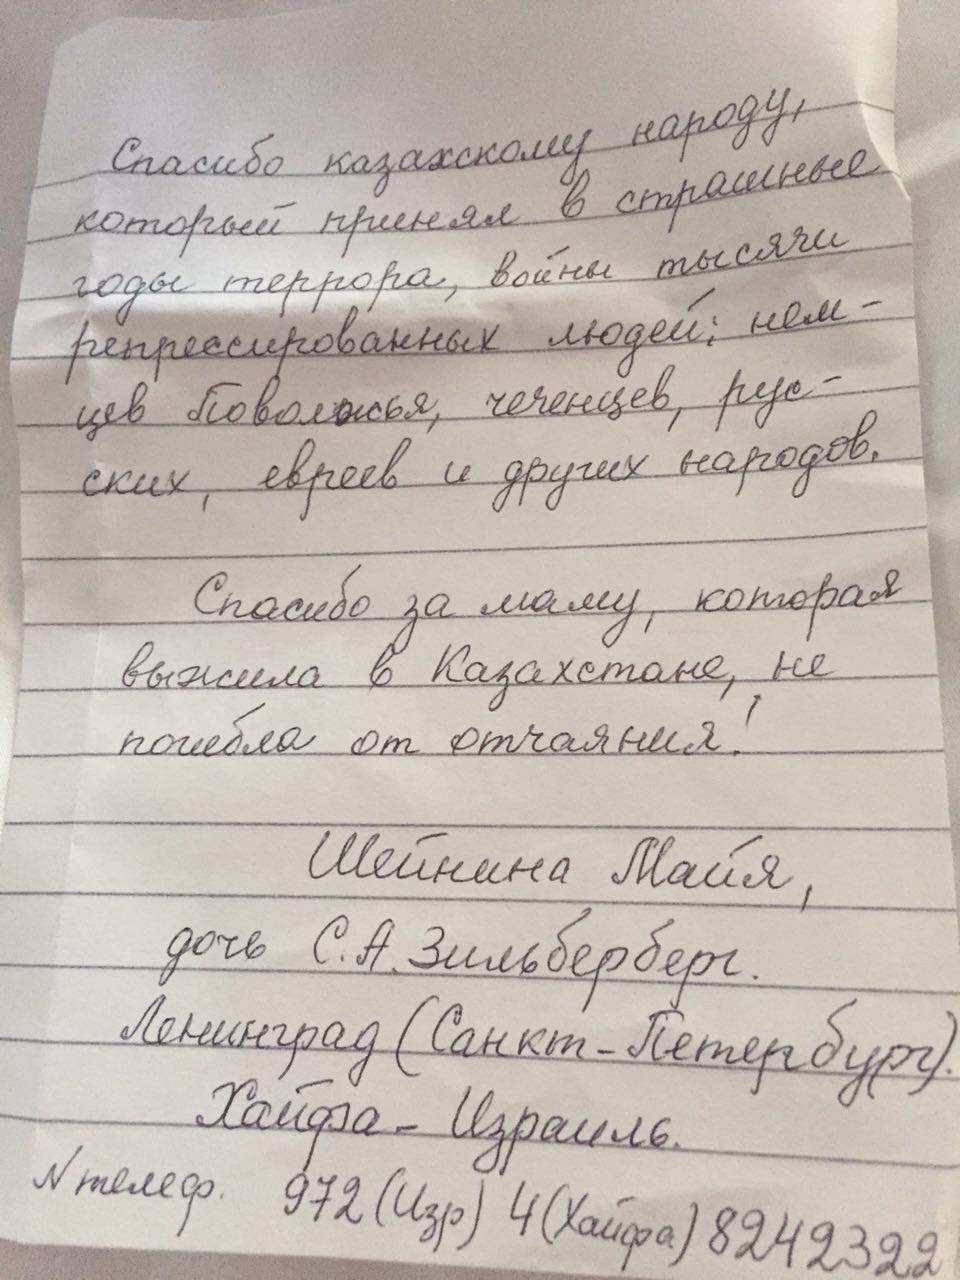 Спасибо казахскому народу,
который принял в страшные
годы террора, войны тысячи
репрессированных людей: нем-
цев Поволжья, чеченцев, рус-
ских, евреев и других народов.
Спасибо за маму, которая
выжила в Казахстане, не
погибла от отчаяния!
Шейнина Майя,
дочь С.А. Зильберберг.
Ленинград (Санкт-Петербург).
Хайфа - Израиль.
N телеф. 972 (Изр) 4 (Хайфа) 8242322